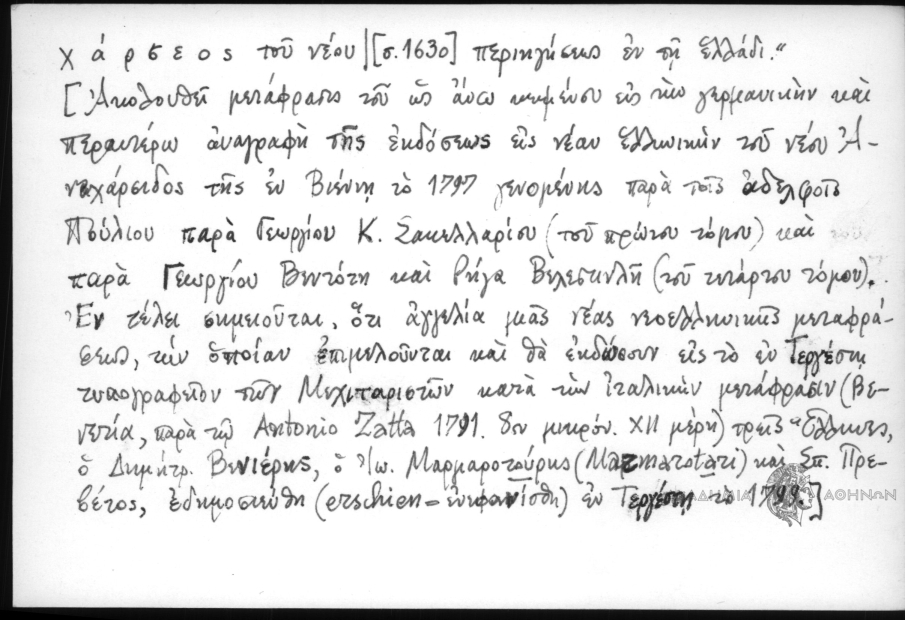 χάρσεος τοῦ νέου|[σ.1630] περιηγήσεως ἐν τῇ Ἑλλάδι."
[Ἀκολουθεῖ μετάφρασις τοῦ ὡς ἄνω κειμένου εἰς τὴν γερμανικὴν καὶ
περαιτέρω ἀναγραφὴ τῆς ἐκδόσεως εἰς νέαν ἑλληνικὴν τοῦ νέου Ἀ-
ναχάρσιδος τῆς ἐν Βιέννῃ τὸ 1797 γενομένης παρὰ τοῖς ἀδελφοῖς
Πούλιου παρὰ Γεωργίου Κ. Σακελλαρίου (τοῦ πρώτου τόμου) καὶ
παρὰ Γεωργίου Βεντότη καὶ Ρήγα Βελεστινλῆ (τοῦ τετάρτου τόμου).
Ἐν τέλει σημειοῦται, ὅτι ἀγγελία μιᾶς νέας νεοελληνικῆς μεταφρά-
σεως, τὴν ὁποίαν ἐπιμελοῦνται καὶ θὰ ἐκδώσουν εἰς τὸ ἐν Τεργέστῃ
τυπογραφεῖον τῶν Μεχιταριστῶν κατὰ τὴν ἰταλικὴν μετάφρασιν (Βε-
νετία, παρὰ τῷ Antonio Zatta 1791. 8ον μικρόν. XII μέρη) τρεῖς Ἕλληνες,
ὁ Δημήτρ. Βενιέρης, ὁ Ἰω. Μαρμαροτούρης (Marmarotari) καὶ Σπ. Πρε-
βέτος, ἐδημοσιεύθη (erschien = ἐνεφανίσθη) ἐν Τεργέστῃ τὸ 1799.]
ΑΘΗΝΩΝ